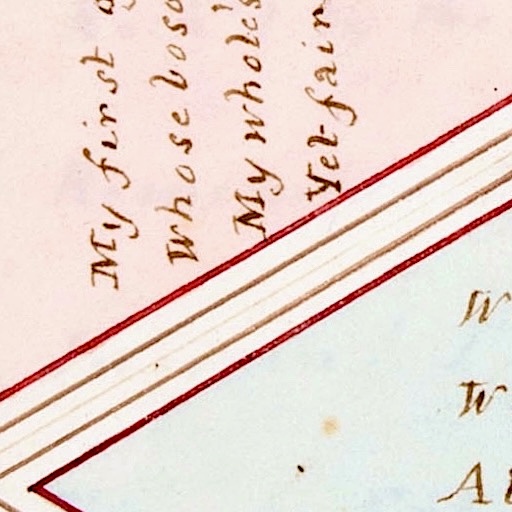 My first
Whose boso
My whole's
Yet fair
W
W